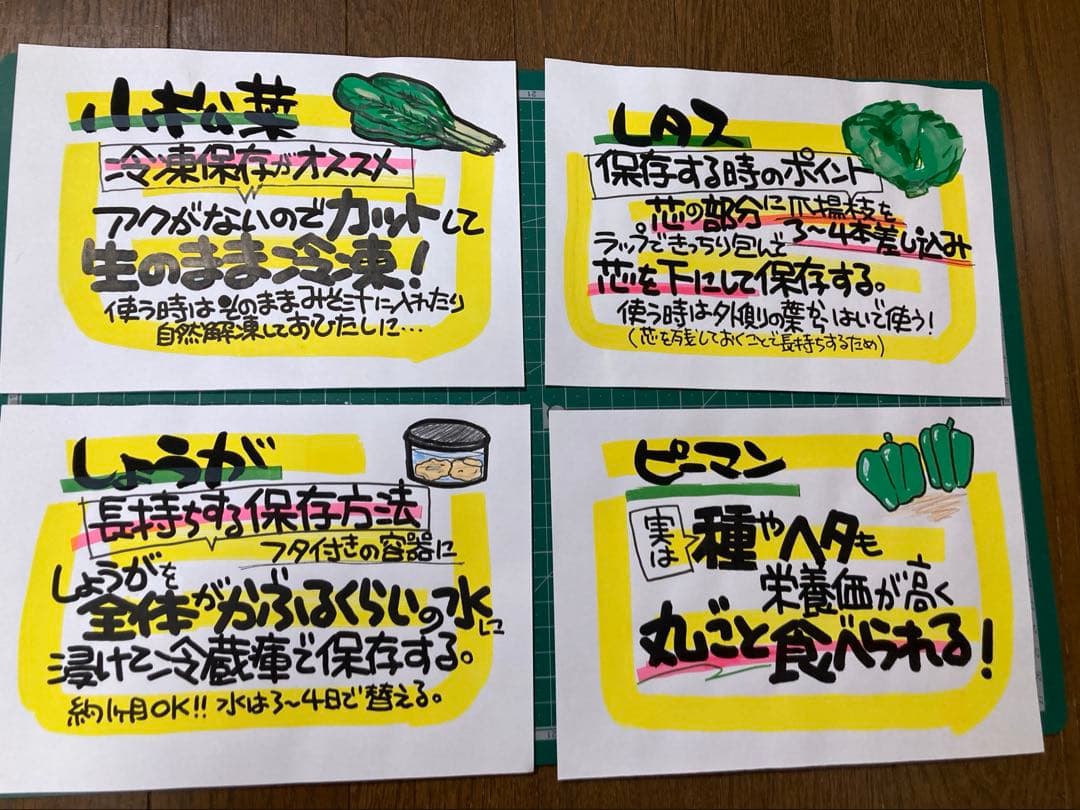 小松菜
冷凍保存がオススメ
アクがないのでカットして
生のまま冷凍!
使う時はそのままみそ汁に入れたり
自然解凍しておひたしに…
レタス
保存する時のポイント
芯の部分に爪楊枝を
3~4本差し込み
ラップできっちり包んで
芯を下にして保存する。
使う時は外側の葉からはいで使う!
(芯を残しておくことで長持ちするため)
しょうが
長持ちする保存方法
フタ付きの容器に
しょうがを
全体がかぶるくらいの水に
浸けて冷蔵庫で保存する。
約1ヶ月OK!! 水は3~4日で替える。
ピーマン
実は
種やヘタも
栄養価が高く
丸ごと食べられる!